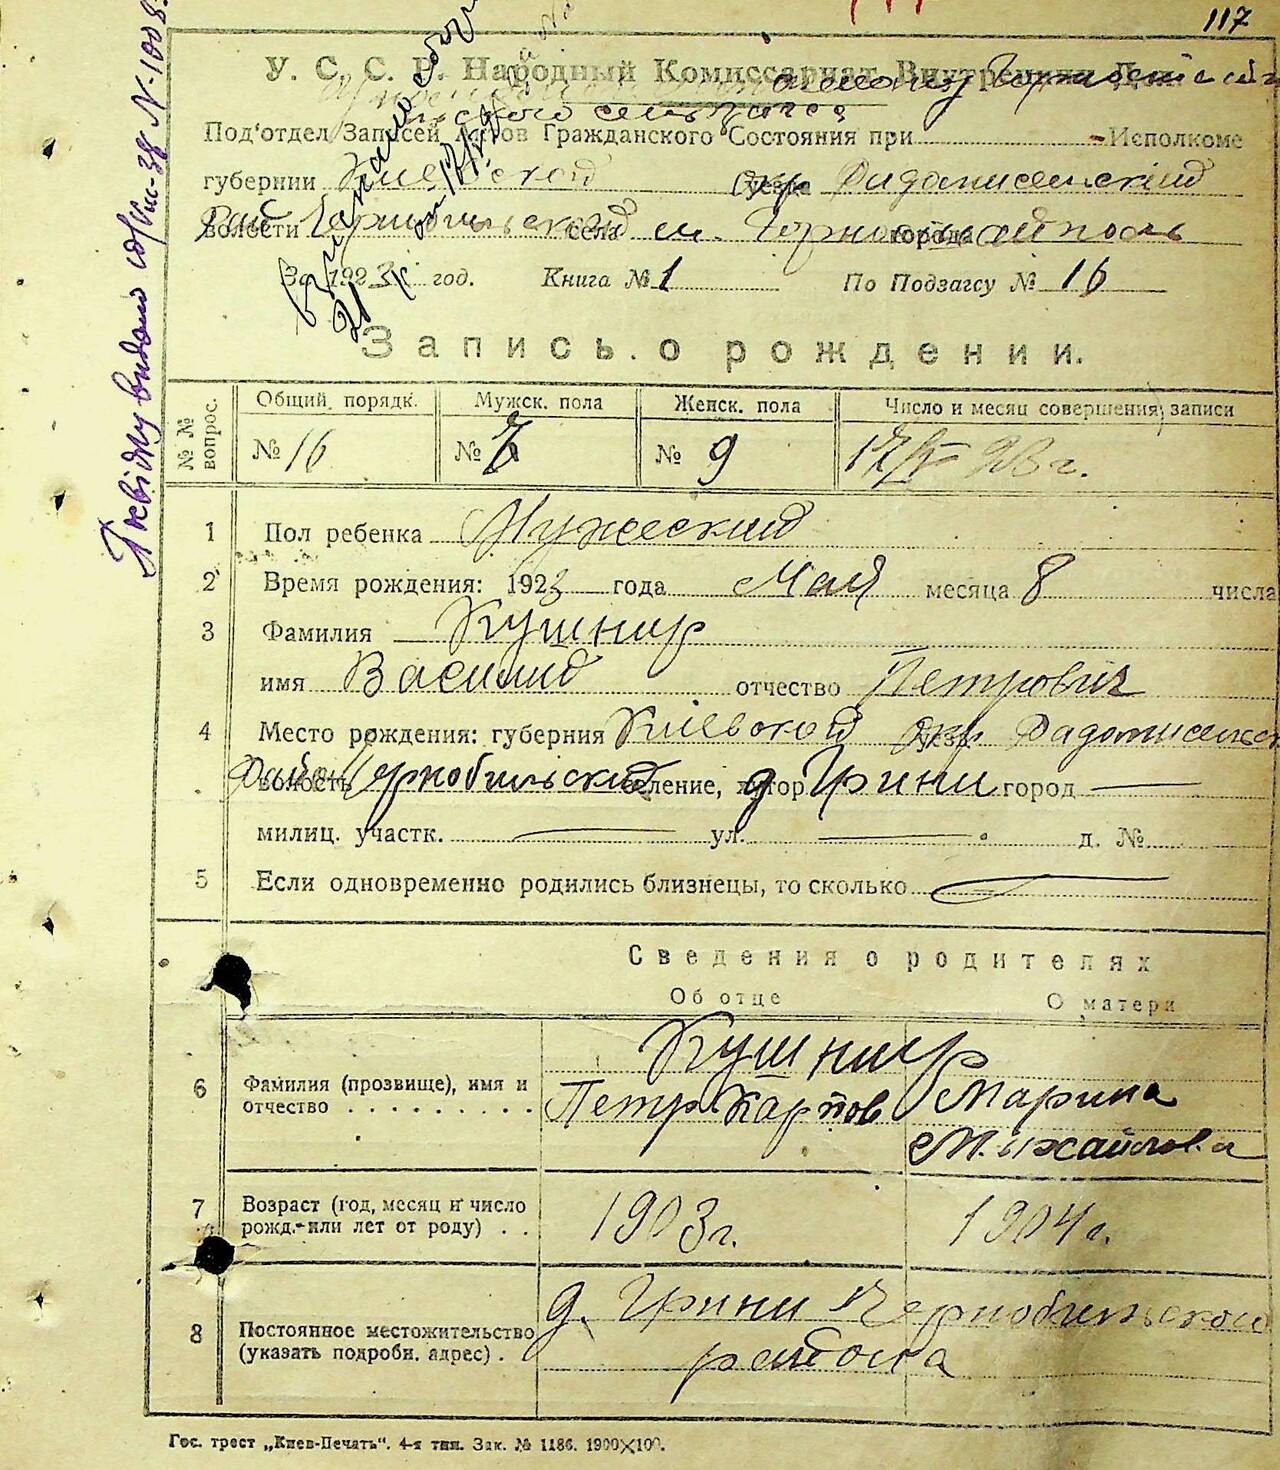 117
У. С. С. Р. Народный Комиссариат Внутренних Дел
Под'отдел Записей Актов Гражданского Состояния при Исполкоме
губернии Киевской Радомисельский
волости Чернобильской села м. города
За 1923 год. Книга № 1 По Подзагсу № 16
Запись о рождении.
№ № вопрос. Общий порядк. Мужск. пола Женск. пола Число и месяц совершения записи
№ 16 № 7 № 9 17/V 23 г.
1 Пол ребенка Мужеский
2 Время рождения: 1923 года Мая месяца 8 числа
3 Фамилия Кушнир
имя Василий отчество Петрович
4 Место рождения: губерния Киевской окр Радомисельск
волость Чернобильский селение, хутор д Грини город —
милиц. участк. — ул. — д. №
5 Если одновременно родились близнецы, то сколько —
Сведения о родителях
Об отце О матери
Кушнир
6 Фамилия (прозвище), имя и отчество Петр Карпов Марина
Михайлова
7 Возраст (год, месяц и число рожд. или лет от роду) 1903 г. 1904 г.
8 Постоянное местожительство (указать подробн. адрес) д. Грини Чернобильского
района
Гос. трест „Киев-Печать". 4-я тип. Зак. № 1186. 1900×100.